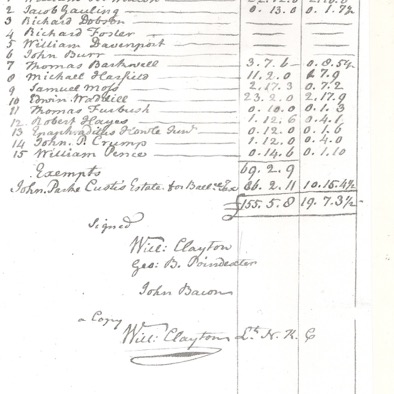 2 Jacob Gauling 0. 13. 0 0. 1. 7 2
3 Richard Dobson
4 Richard Foster
5 William Davenport
6 John Burr
7 Thomas Barkwell 3. 7. 6 0. 8. 5 ¼
8 Michael 11. 2. 0 1. 7. 9
9 Samuel Moss 2. 17. 3 0. 7. 2
10 Edwin Waddill 23. 2. 0 2. 17. 9
11 Thomas Furbush 0. 10. 0 0. 1. 3
12 Robert Hayes 1. 12. 6 0. 4. 1
13 Epaphraditus Howle Junr 0. 12. 0 0. 1. 6
14 John. P. Crump 1. 12. 0 0. 4. 0
15 William Pence 0. 14. 6 0. 1. 10
Exempts 69. 2. 9
John. Parke Custis Estate for Ballce Tax 86. 2. 11 10. 15. 4½
£155. 5. 8 19. 7. 3½
Signed
Will: Clayton
Geo: B. Poindexter
John Bacon
a Copy
Will: Clayton N. K. C